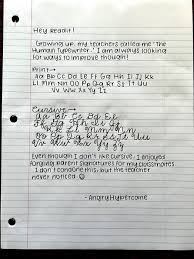 Hey Reddit!
Growing up, my teachers called me "The
Human Typewriter." I am always looking
for ways to improve though!
Print→
Aa Bb Cc Dd Ee Ff Gg Hh Ii Jj Kk
Ll Mm Nn Oo Pp Qq Rr Ss Tt Uu
Vv Ww Xx Yy Zz
Cursive→
Aa Bb Cc Dd Ee
Ff Gg Hh Ii Jj
Kk Ll Mm Nn
Oo Pp Qq Rr Ss Tt Uu
Vv Ww Xx Yy Zz
Even though I don't like cursive, I enjoyed
forging parent signatures for my classmates.
I don't condone this, but the teacher
never noticed
-AngryHypercone